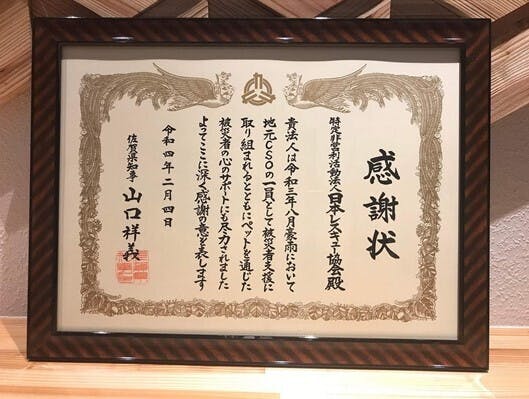 感謝状
特定非営利活動法人日本レスキュー協会殿
貴法人は令和三年八月豪雨において
地元CSOの一員として被災者支援に
取り組まれるとともにペットを通じた
被災者の心のサポートにも尽力されました
よってここに深く感謝の意を表します
令和四年二月四日
佐賀県知事 山口祥義